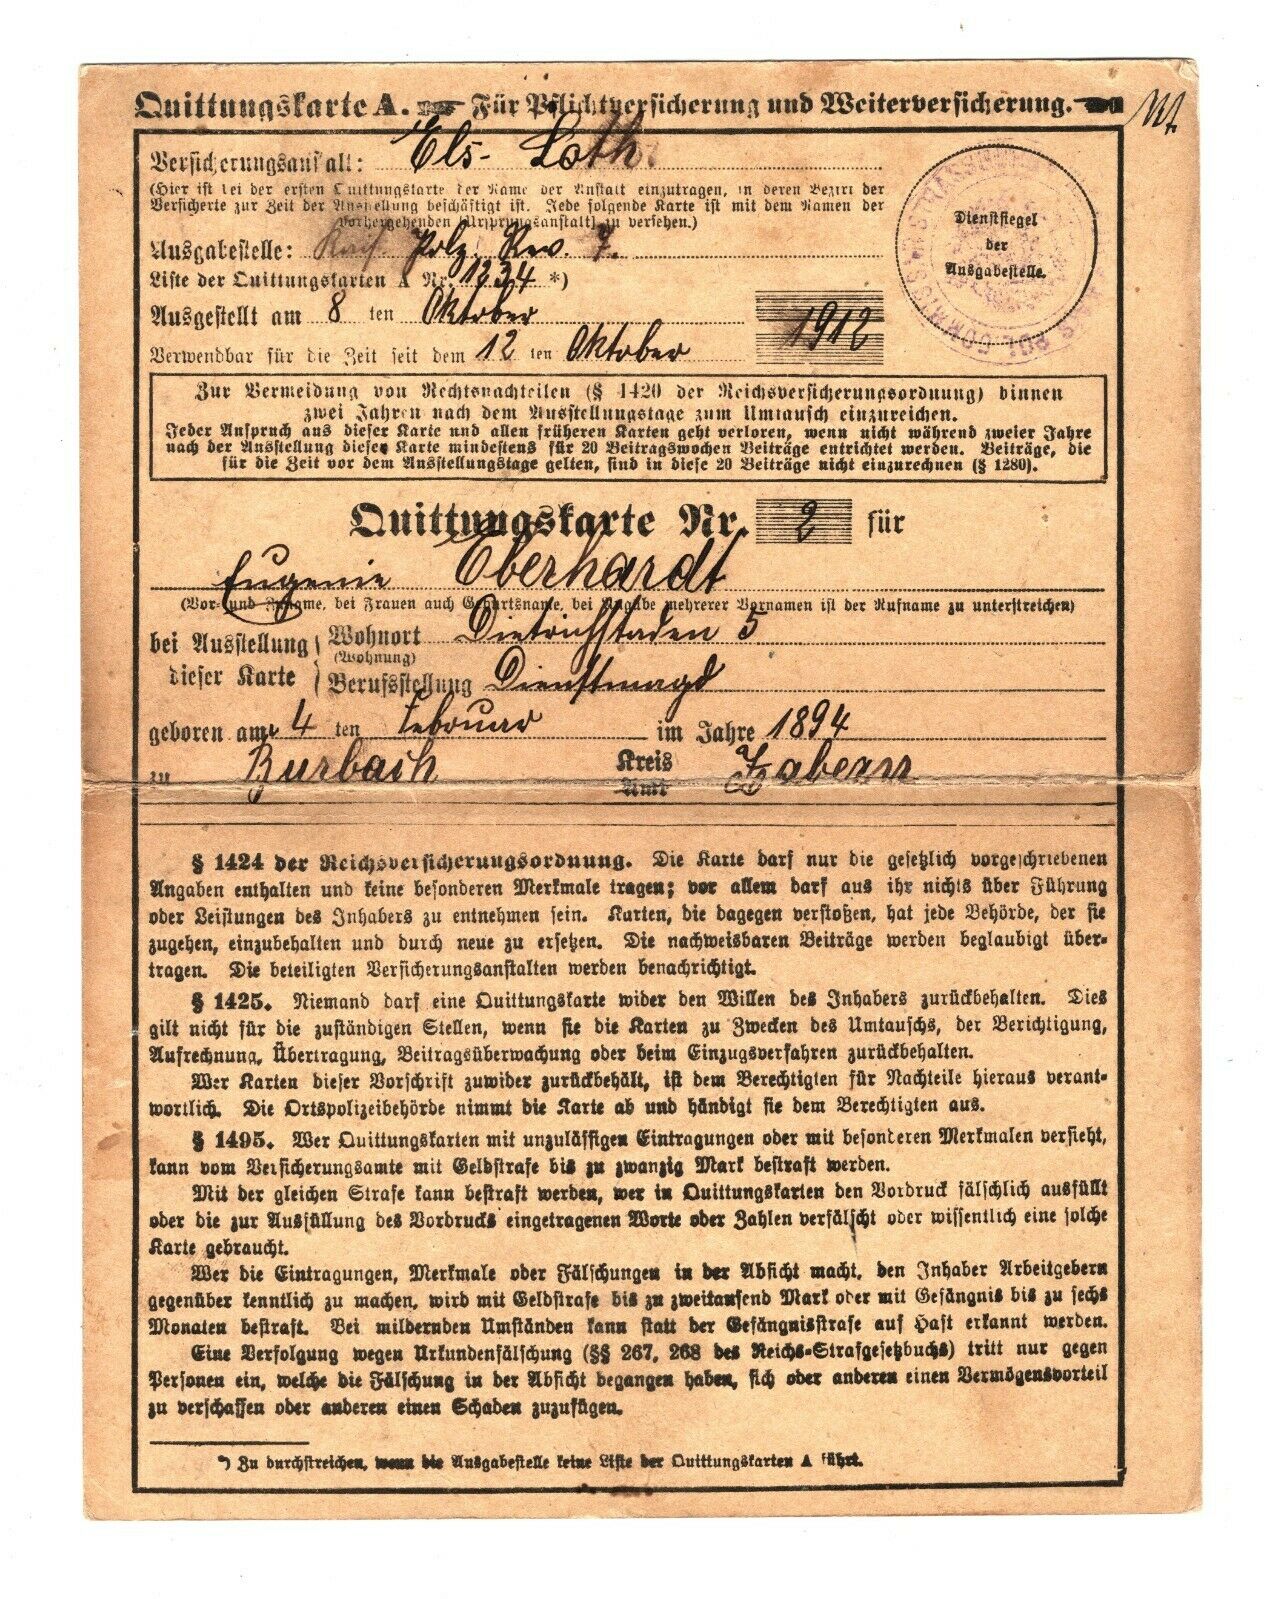 Quittungskarte A. Für Pflichtversicherung und Weiterversicherung.
Versicherungsanstalt: Els-Loth.
(Hier ist bei der ersten Quittungskarte der Name der Anstalt einzutragen, in deren Bezirk der
Versicherte zur Zeit der Ausstellung beschäftigt ist. Jede folgende Karte ist mit dem Namen der
vorhergehenden [Ursprungsanstalt] zu versehen.)
Ausgabestelle: Kais. Polz. Rev. 7.
Liste der Quittungskarten A Nr. 1234 *)
Ausgestellt am 8 ten Oktober 1912
Verwendbar für die Zeit seit dem 12 ten Oktober
Dienstsiegel
der
Ausgabestelle.
Zur Vermeidung von Rechtsnachteilen (§ 1420 der Reichsversicherungsordnung) binnen
zwei Jahren nach dem Ausstellungstage zum Umtausch einzureichen.
Jeder Anspruch aus dieser Karte und allen früheren Karten geht verloren, wenn nicht während zweier Jahre
nach der Ausstellung dieser Karte mindestens für 20 Beitragswochen Beiträge entrichtet werden. Beiträge, die
für die Zeit vor dem Ausstellungstage gelten, sind in diese 20 Beiträge nicht einzurechnen (§ 1280).
Quittungskarte Nr. 2 für
Eugenie Eberhardt
(Vor- und Zuname, bei Frauen auch Geburtsname, bei Angabe mehrerer Vornamen ist der Rufname zu unterstreichen)
bei Ausstellung Wohnort Dietrichstaden 5
(Wohnung)
dieser Karte Berufsstellung Dienstmagd
geboren am 4 ten Februar im Jahre 1894
zu Burbach Kreis Zabern
Amt
§ 1424 der Reichsversicherungsordnung. Die Karte darf nur die gesetzlich vorgeschriebenen
Angaben enthalten und keine besonderen Merkmale tragen; vor allem darf aus ihr nichts über Führung
oder Leistungen des Inhabers zu entnehmen sein. Karten, die dagegen verstoßen, hat jede Behörde, der sie
zugehen, einzubehalten und durch neue zu ersetzen. Die nachweisbaren Beiträge werden beglaubigt über-
tragen. Die beteiligten Versicherungsanstalten werden benachrichtigt.
§ 1425. Niemand darf eine Quittungskarte wider den Willen des Inhabers zurückbehalten. Dies
gilt nicht für die zuständigen Stellen, wenn sie die Karten zu Zwecken des Umtauschs, der Berichtigung,
Aufrechnung, Übertragung, Beitragsüberwachung oder beim Einzugsverfahren zurückbehalten.
Wer Karten dieser Vorschrift zuwider zurückbehält, ist dem Berechtigten für Nachteile hieraus verant-
wortlich. Die Ortspolizeibehörde nimmt die Karte ab und händigt sie dem Berechtigten aus.
§ 1495. Wer Quittungskarten mit unzulässigen Eintragungen oder mit besonderen Merkmalen versieht,
kann vom Versicherungsamte mit Geldstrafe bis zu zwanzig Mark bestraft werden.
Mit der gleichen Strafe kann bestraft werden, wer in Quittungskarten den Vordruck fälschlich ausfüllt
oder die zur Ausfüllung des Vordrucks eingetragenen Worte oder Zahlen verfälscht oder wissentlich eine solche
Karte gebraucht.
Wer die Eintragungen, Merkmale oder Fälschungen in der Absicht macht, den Inhaber Arbeitgebern
gegenüber kenntlich zu machen, wird mit Geldstrafe bis zu zweitausend Mark oder mit Gefängnis bis zu sechs
Monaten bestraft. Bei mildernden Umständen kann statt der Gefängnisstrafe auf Haft erkannt werden.
Eine Verfolgung wegen Urkundenfälschung (§§ 267, 268 des Reichs-Strafgesetzbuchs) tritt nur gegen
Personen ein, welche die Fälschung in der Absicht begangen haben, sich oder anderen einen Vermögensvorteil
zu verschaffen oder anderen einen Schaden zuzufügen.
*) Zu durchstreichen, wenn die Ausgabestelle keine Liste der Quittungskarten A führt.